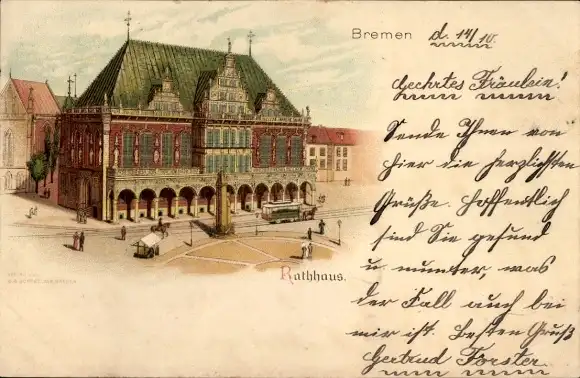 Bremen d. 14/10.
Geehrtes Fräulein!
Sende Ihnen von
hier die herzlichsten
Grüße. Hoffentlich
sind Sie gesund
u. munter, was
der Fall auch bei
mir ist. Besten Gruß
Gertrud Förster
Rathhaus.